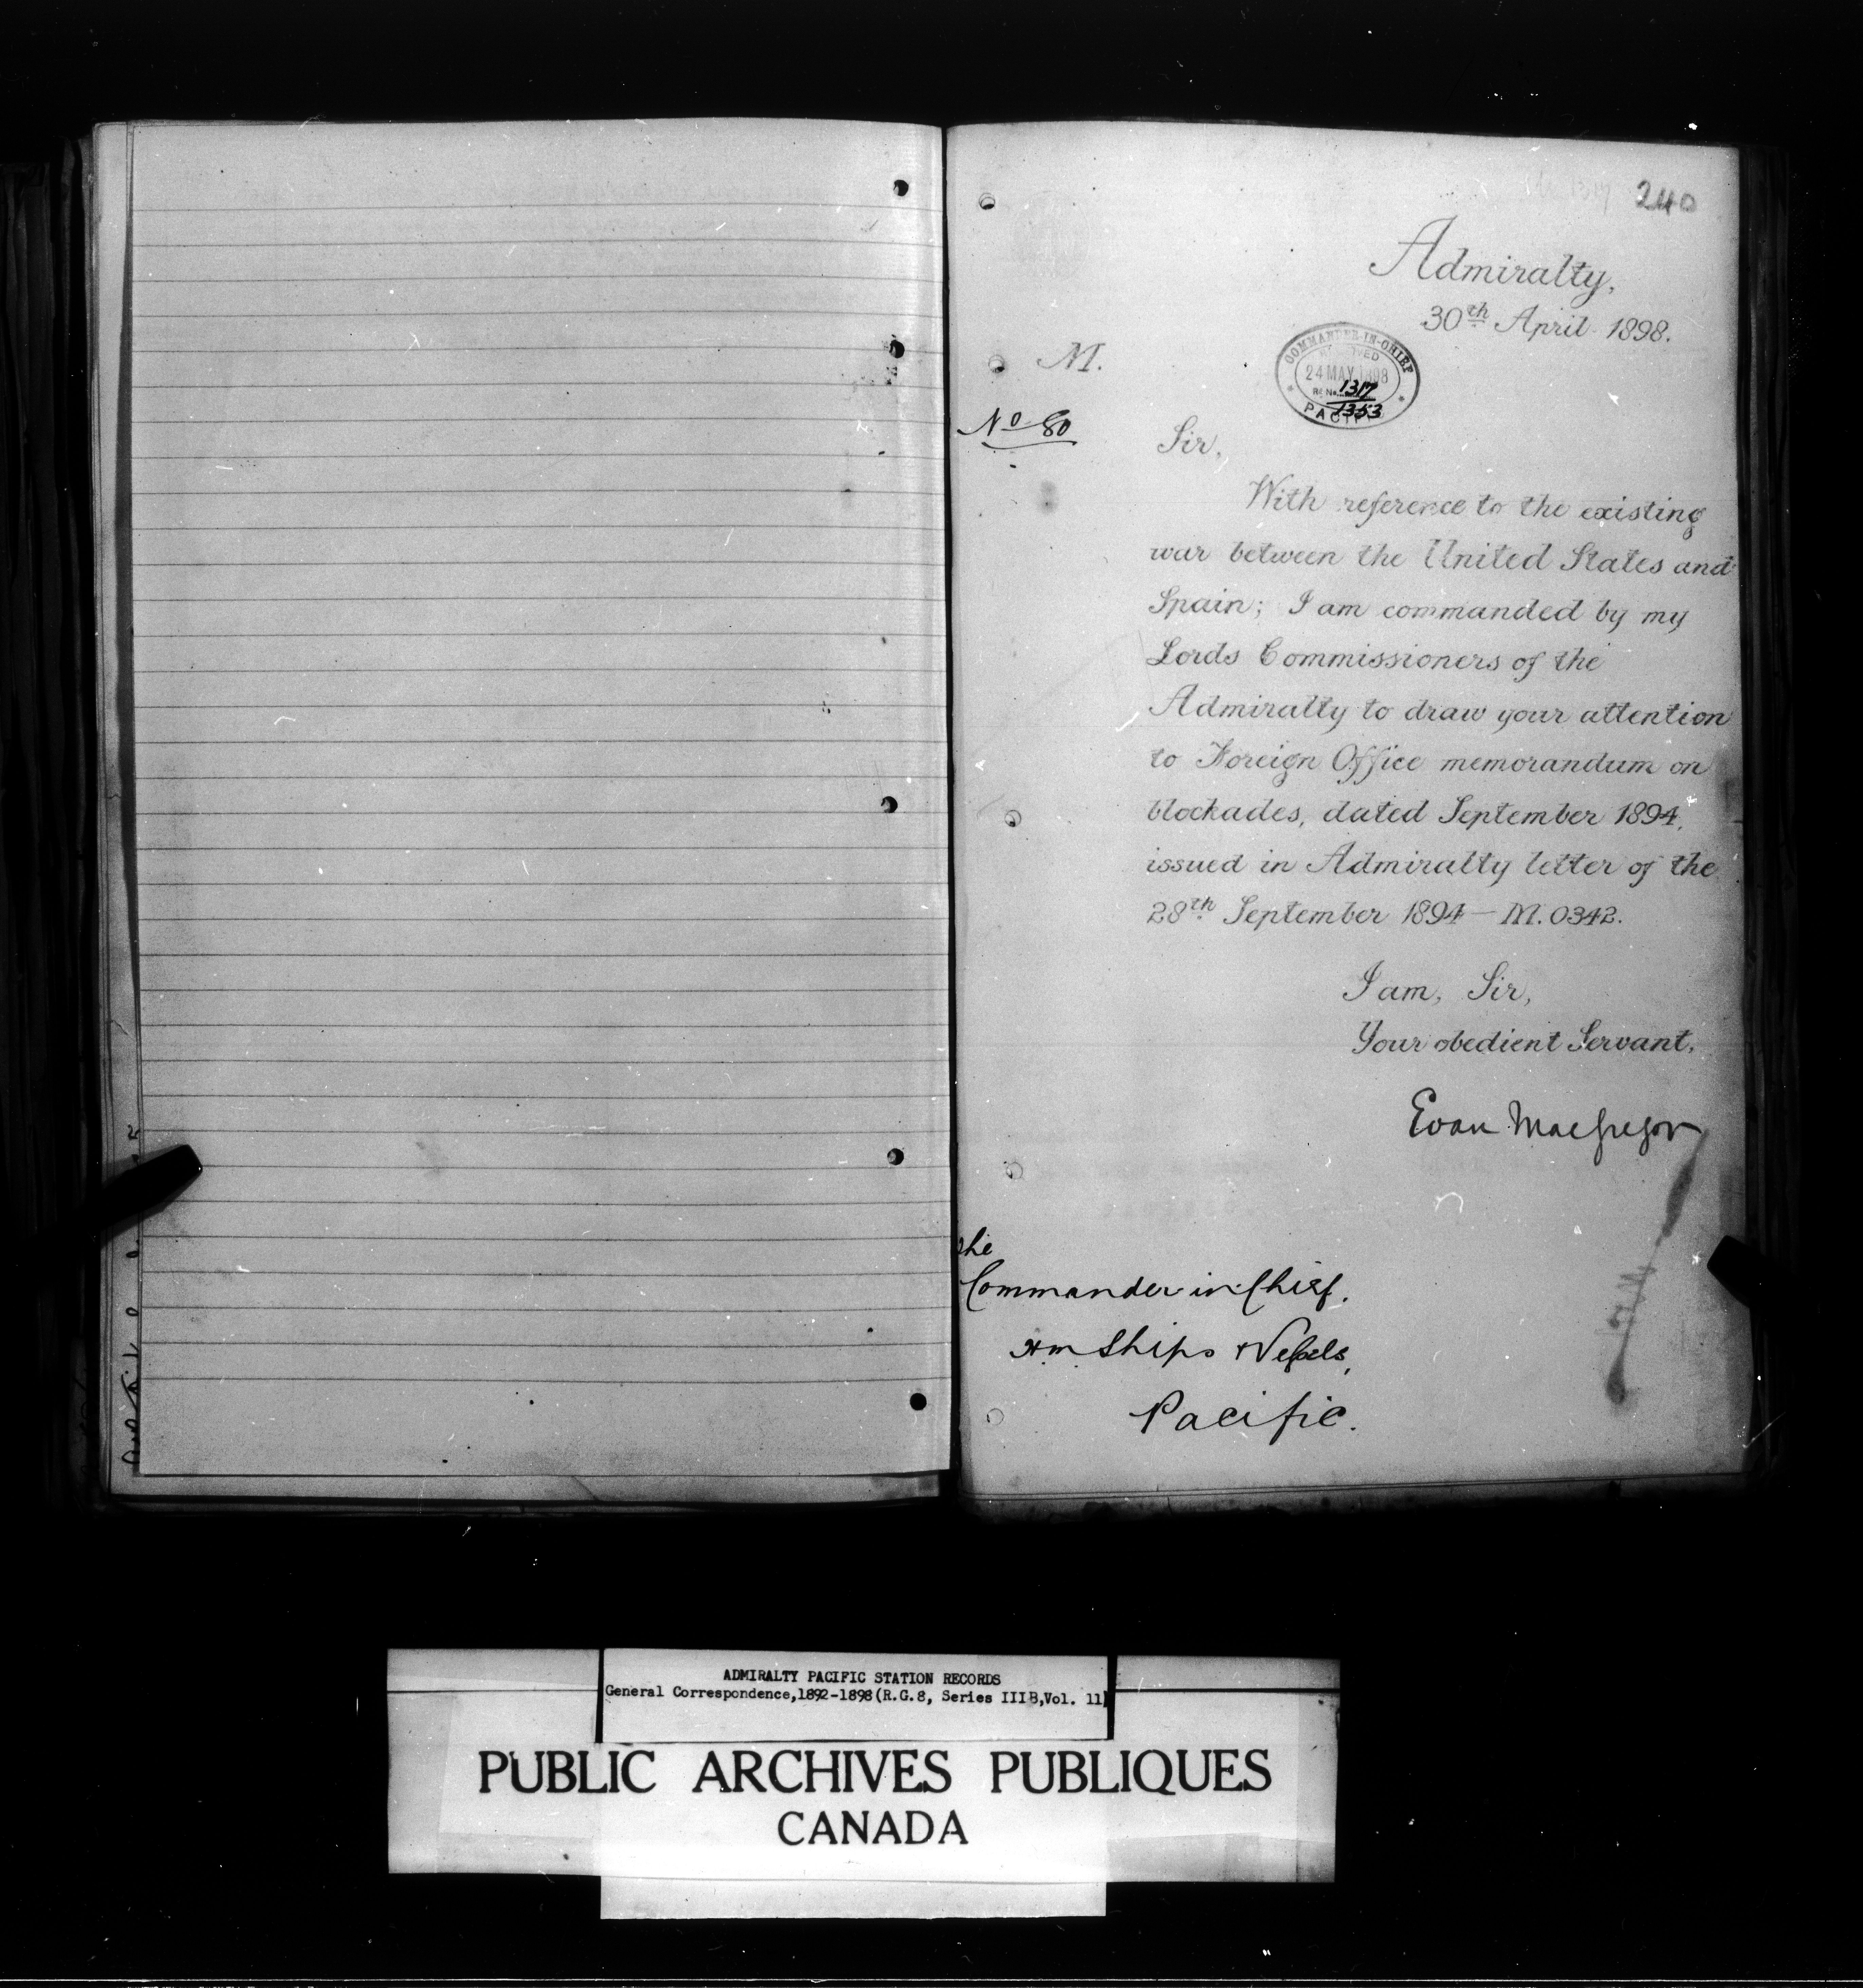 240
Admiralty,
30th April 1898.
COMMANDER-IN-CHIEF
24 MAY 1898
1317
1353
PACIFIC
M.
No 80
Sir,
With reference to the existing
war between the United States and
Spain; I am commanded by my
Lords Commissioners of the
Admiralty to draw your attention
to Foreign Office memorandum on
blockades, dated September 1894,
issued in Admiralty letter of the
28th September 1894 — M. 0342.
I am, Sir,
Your obedient Servant,
Evan MacGregor
The
Commander in Chief.
HM Ships & Vessels,
Pacific.
ADMIRALTY PACIFIC STATION RECORDS
General Correspondence,1892-1898(R.G.8, Series IIIB,Vol. 11)
PUBLIC ARCHIVES PUBLIQUES
CANADA